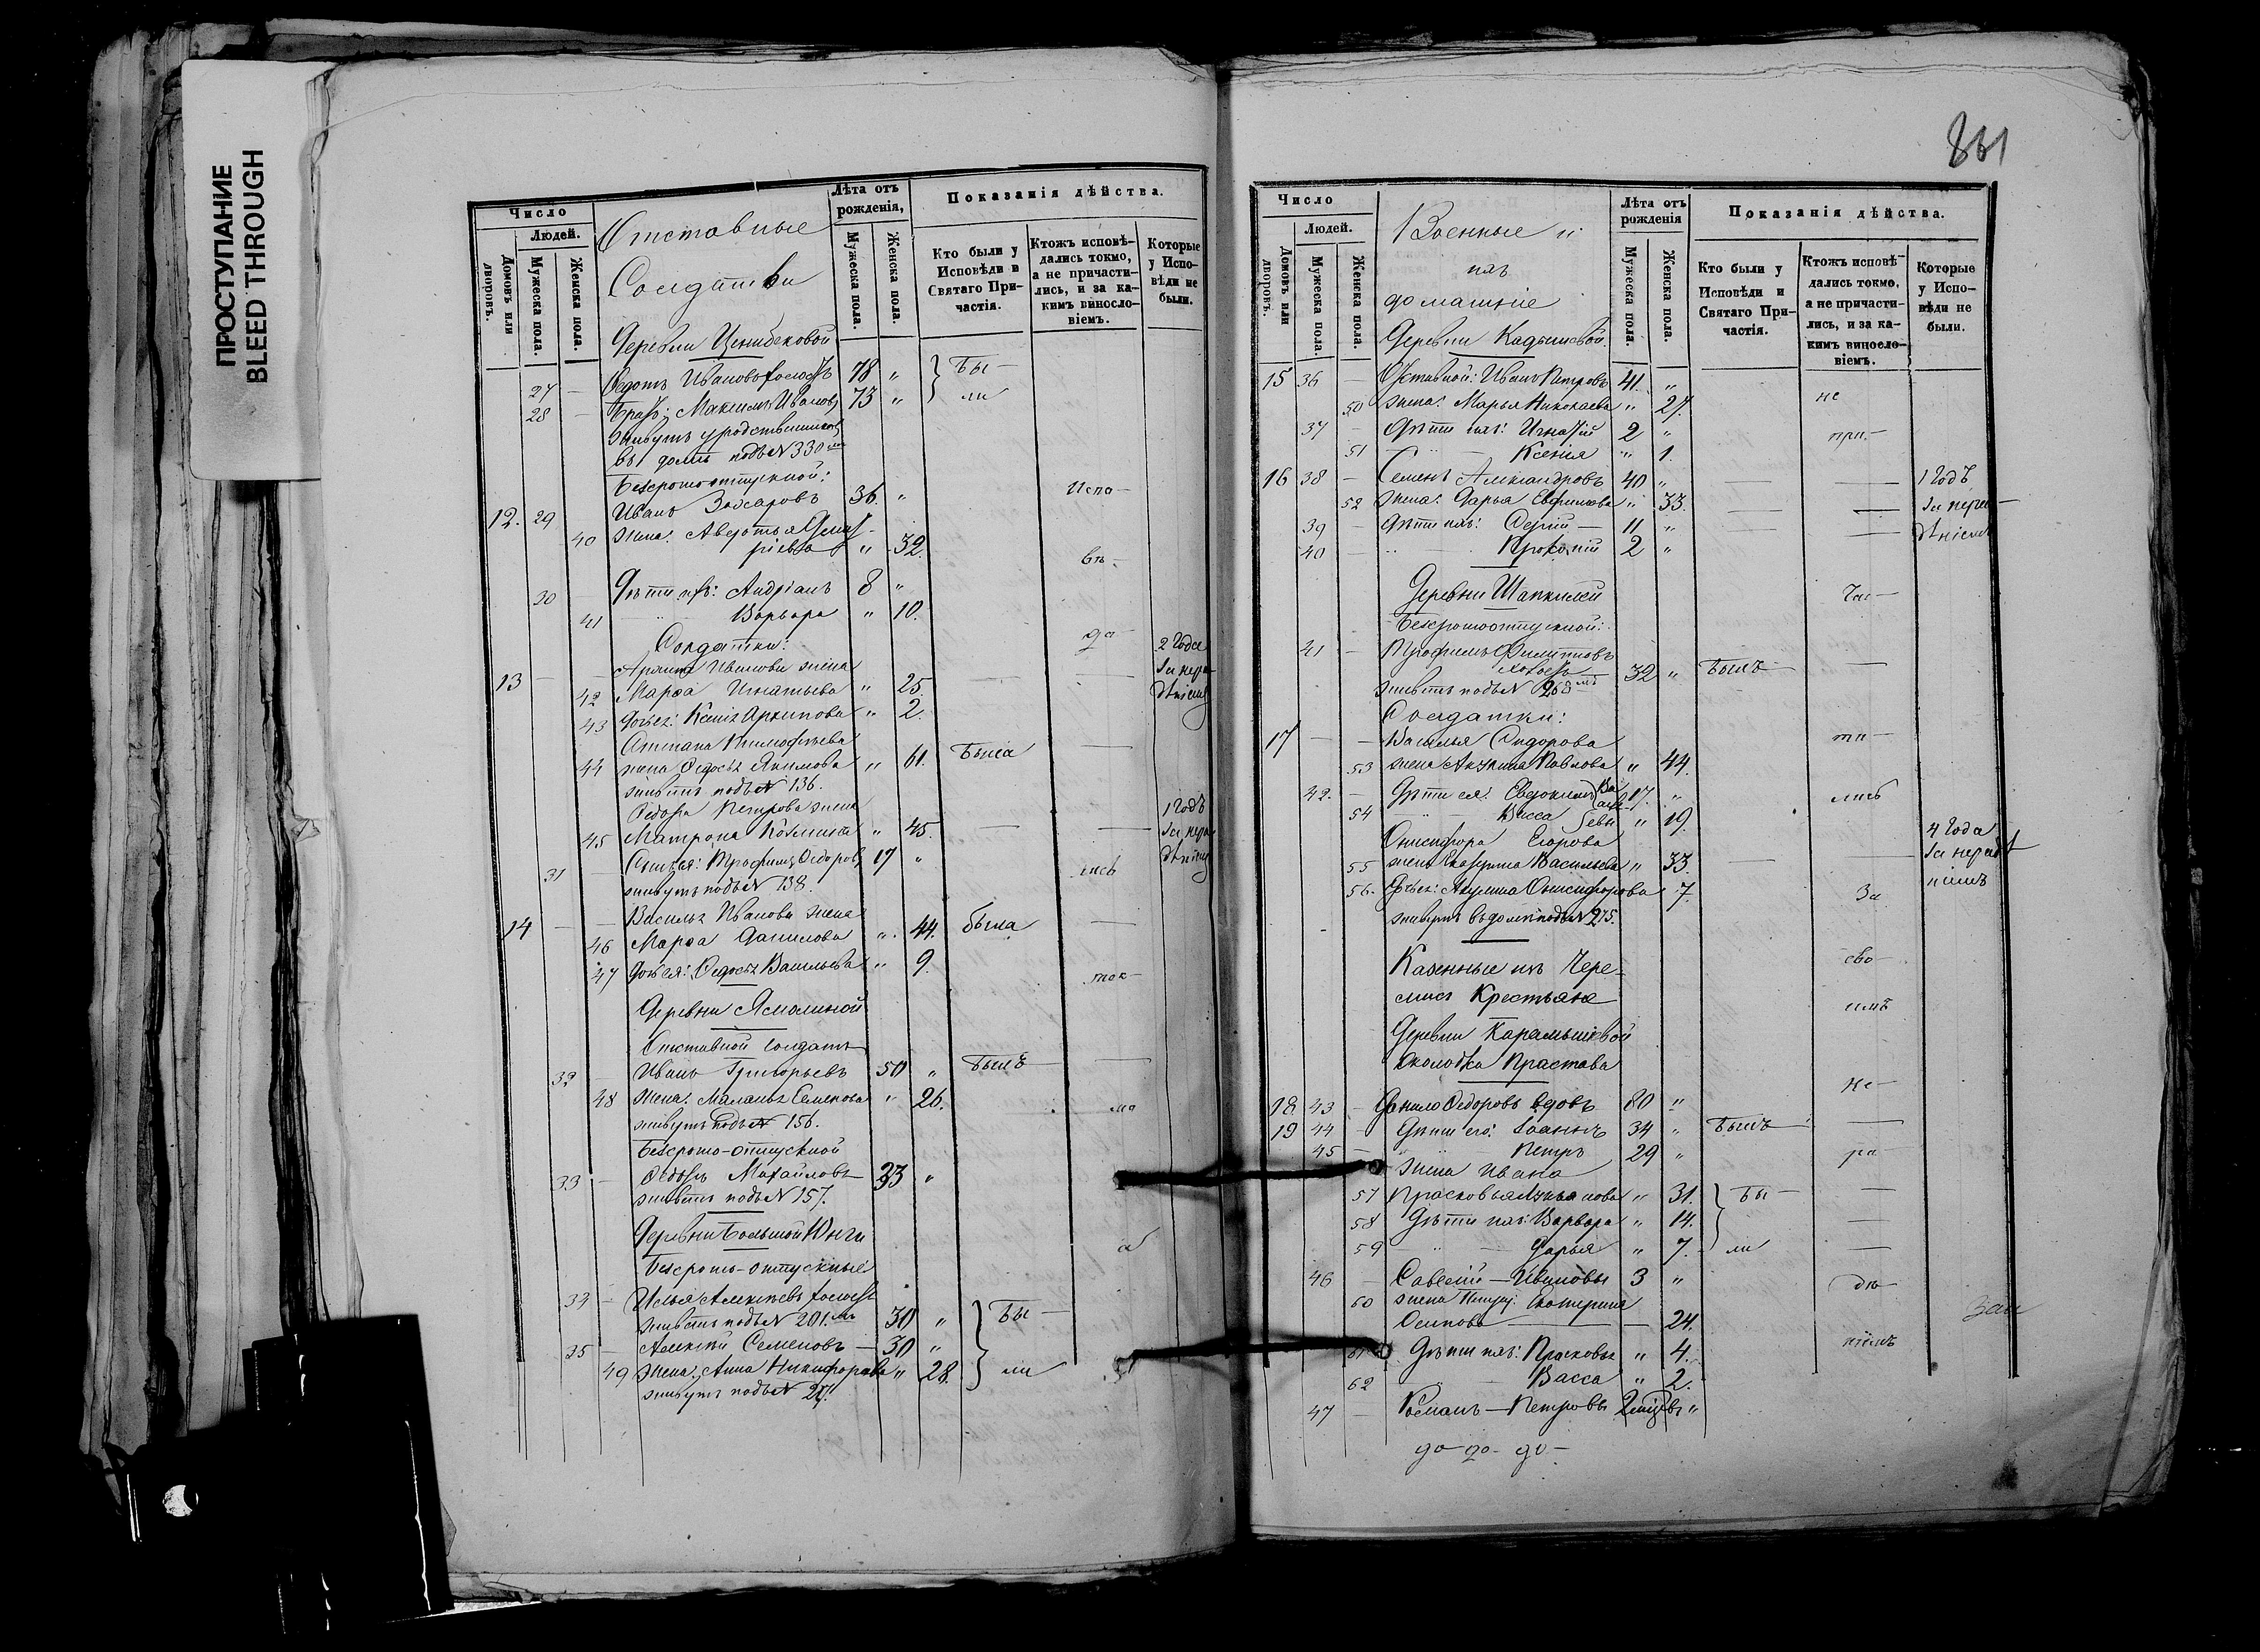 ПРОСТУПАНИЕ
BLEED THROUGH
Число
Людей.
Домовъ или дворовъ.
Мужеска пола.
Женска пола.
Отставные
Солдатки
Лѣта отъ рожденія,
Мужеска пола.
Женска пола.
Показанія дѣйства.
Кто были у Исповѣди и Святаго Причастія.
Ктожъ исповѣдались токмо, а не причастились, и за какимъ винословіемъ.
Которые у Исповѣди не были.
Деревни
27 — Ѳедотъ Ивановъ холостъ 78 " Бы-
28 — Братъ: Максимъ Ивановъ 73 " ли
живутъ у родственниковъ
въ домѣ подъ N 330
Безсрочноотпускной:
12. 29 Иванъ Захаровъ 36 " Испо-
40 жена: Авдотья
" 32. вѣ-
30 Дѣти ихъ: Андріанъ 8 "
41 " Варвара " 10.
Солдатки: да- 2 года
Архипа Иванова жена за нера-
13 — 42 Марѳа Игнатьева " 25. — — дѣніемъ
43 дочь ея: Ксенія Архипова " 2.
Степана Тимофѣева
44 жена Ѳедосья Якимова " 61. Была —
живетъ подъ N 136.
Ѳедора Петрова жена 1 годъ
45 Матрона Козмина " 45. — — за нера-
31 — Сынъ ея: Трофимъ Ѳедоровъ 17 " лись дѣніемъ
живутъ подъ N 138.
14 — — Василья Иванова жена
46 Марѳа Данилова " 44. была —
47 дочь ея: Ѳедосья Васильева " 9. ток-
Деревни Ясмолиной
Отставной солдатъ
32 — Иванъ Григорьевъ 50 " Былъ —
48 жена: Маланья Семенова " 26. мо
живутъ подъ N 156.
Безсрочно-отпускной
33 — Ѳедоръ Михайловъ 33 "
живетъ подъ N 157.
Деревни Большой Юнги а
Безсрочно-отпускные
34 — Илья Алексѣевъ холостъ
живетъ подъ N 201. 30 " Бы-
35 — Алексѣй Семеновъ — 30 "
49 жена: Анна Никифорова " 28. ли
живутъ подъ N
861
Число
Людей.
Домовъ или дворовъ.
Мужеска пола.
Женска пола.
Военные и
ихъ
домашніе
Лѣта отъ рожденія
Мужеска пола.
Женска пола.
Показанія дѣйства.
Кто были у Исповѣди и Святаго Причастія.
Ктожъ исповѣдались токмо, а не причастились, и за какимъ винословіемъ.
Которые у Исповѣди не были.
Деревни Кадышевой.
15 36 — Отставной: Иванъ Петровъ 41. " не
50 жена: Марья Николаева " 27.
37 — Дѣти ихъ: Игнатій 2 " при-
51 — " — Ксенія " 1.
16 38 — Семенъ Александровъ 40 " — — 1 годъ
52 жена: Дарья Евфимова " 33. — — за нера-
39 — Дѣти ихъ: Сергій — 11 " — дѣніемъ
40 — " — Прокопій 2 "
Деревни Шапкилей час-
Безсрочноотпускной:
41 — Трофимъ Филипповъ
холостъ 32 " Былъ —
живетъ подъ N 268
Солдатки:
17 — — Василья Сидорова ти-
53 жена Акулина Павлова " 44.
42. — Дѣти ея: Евдокимъ Ва- 17. " лись
54 — " — Васса сильевы " 19.
Онисифора Егорова 4 года
55 жена Екатерина Васильева " 33. — — за нерадѣ-
56. дочь ея: Акулина Онисифорова 7. За ніемъ
живутъ въ домѣ подъ N 275.
Казенные изъ Чере- сво-
мисъ Крестьяне
имъ
Деревни Карамышевой
околотка Прастова
не-
18. 43 — Данило Ѳедоровъ вдовъ 80 "
19 44 — Дѣти его: Іоаннъ 34 " Былъ —
45 — " Петръ 29 " ра-
жена Ивана
57 Прасковья Лукьянова " 31. Бы- —
58 Дѣти ихъ: Варвара " 14. —
59 — " — Дарья " 7. ли —
46 — Савелій — Ивановы 3 " дѣ-
60 жена Петра: Екатерина
Осипова — — 24.
61 Дѣти ихъ: Прасковья " 4. ніемъ
62 — " — Васса " 2.
47 — Романъ — Петровы 2 мѣсяцевъ "
до-до-до-